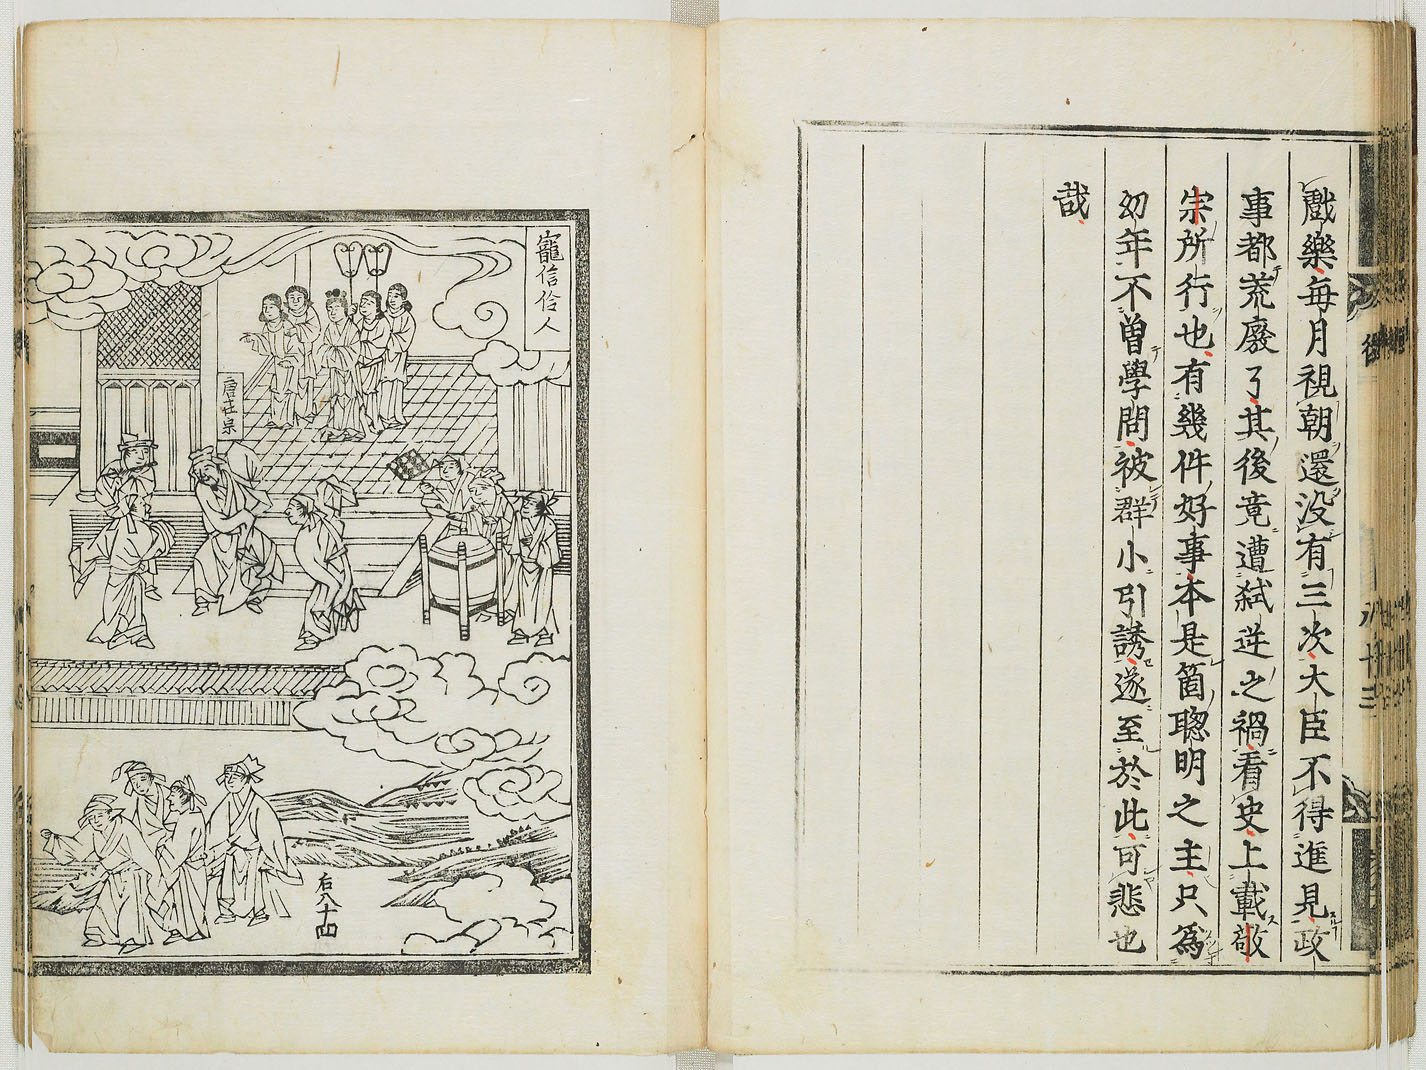 戲樂每月視朝還没有三次大臣不得進見政
事都荒廢了其後竟遭弑逆之禍看史上載敬
宗所行也有幾件好事本是箇聰明之主只為
幼年不曾學問被群小引誘遂至於此可悲也
哉
寵信伶人
唐莊宗
右八十四